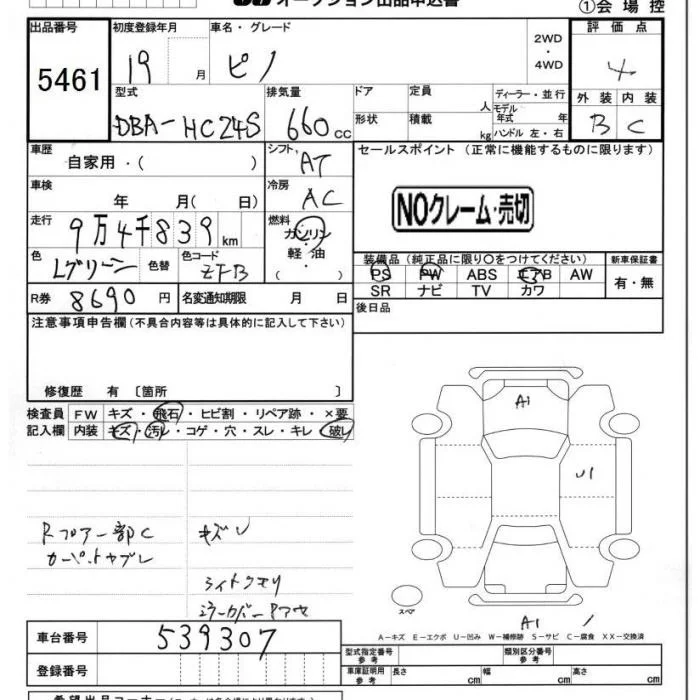 オークション出品申込書
①会場控
出品番号 初度登録年月 車名・グレード 評価点
5461 19 月 ピノ 2WD ・ 4WD 4
型式 排気量 ドア 定員 人 ディーラー・並行 外装 内装
DBA-HC24S 660 cc 形状 積載 kg モデル年式 年 ハンドル 左・右 B C
車歴 自家用・( ) シフト AT セールスポイント (正常に機能するものに限ります)
車検 年 月( 日) 冷房 AC
NOクレーム・売切
走行 9万4千839 km 燃料 ガソリン・軽油
色 Lグリーン 色替 色コード ZFB
装備品 (純正品に限り○をつけてください) 新車保証書
PS PW ABS エアB AW 有・無
SR ナビ TV カワ
R券 8690 円 名変通知期限 月 日
後日品
注意事項申告欄(不具合内容等は具体的に記入して下さい)
修復歴 有 〔箇所 〕
検査員 FW キズ・飛石・ヒビ割・リペア跡・×要
記入欄 内装 キズ・汚レ・コゲ・穴・スレ・キレ・破レ
A1
U1
Rフロア一部C キズレ
カーペットヤブレ
ライトクモリ
ミラーカバー
スペア
A1
A-キズ E-エクボ U-凹み W-補修跡 S-サビ C-腐食 XX-交換済
車台番号 539307
型式指定番号 参考 類別区分番号 参考
登録番号
車庫証明用 参考 長さ cm 幅 cm 高さ cm
希望出品コーナー